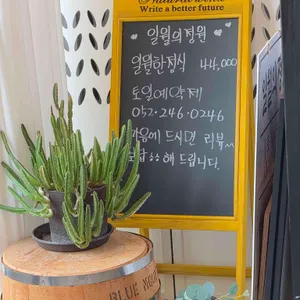 Write a better future
일월의정원
일월한정식 44,000
토일예약제
052·246·0246
마음에 드시면 리뷰^^
해 드립니다.
BLUE MO